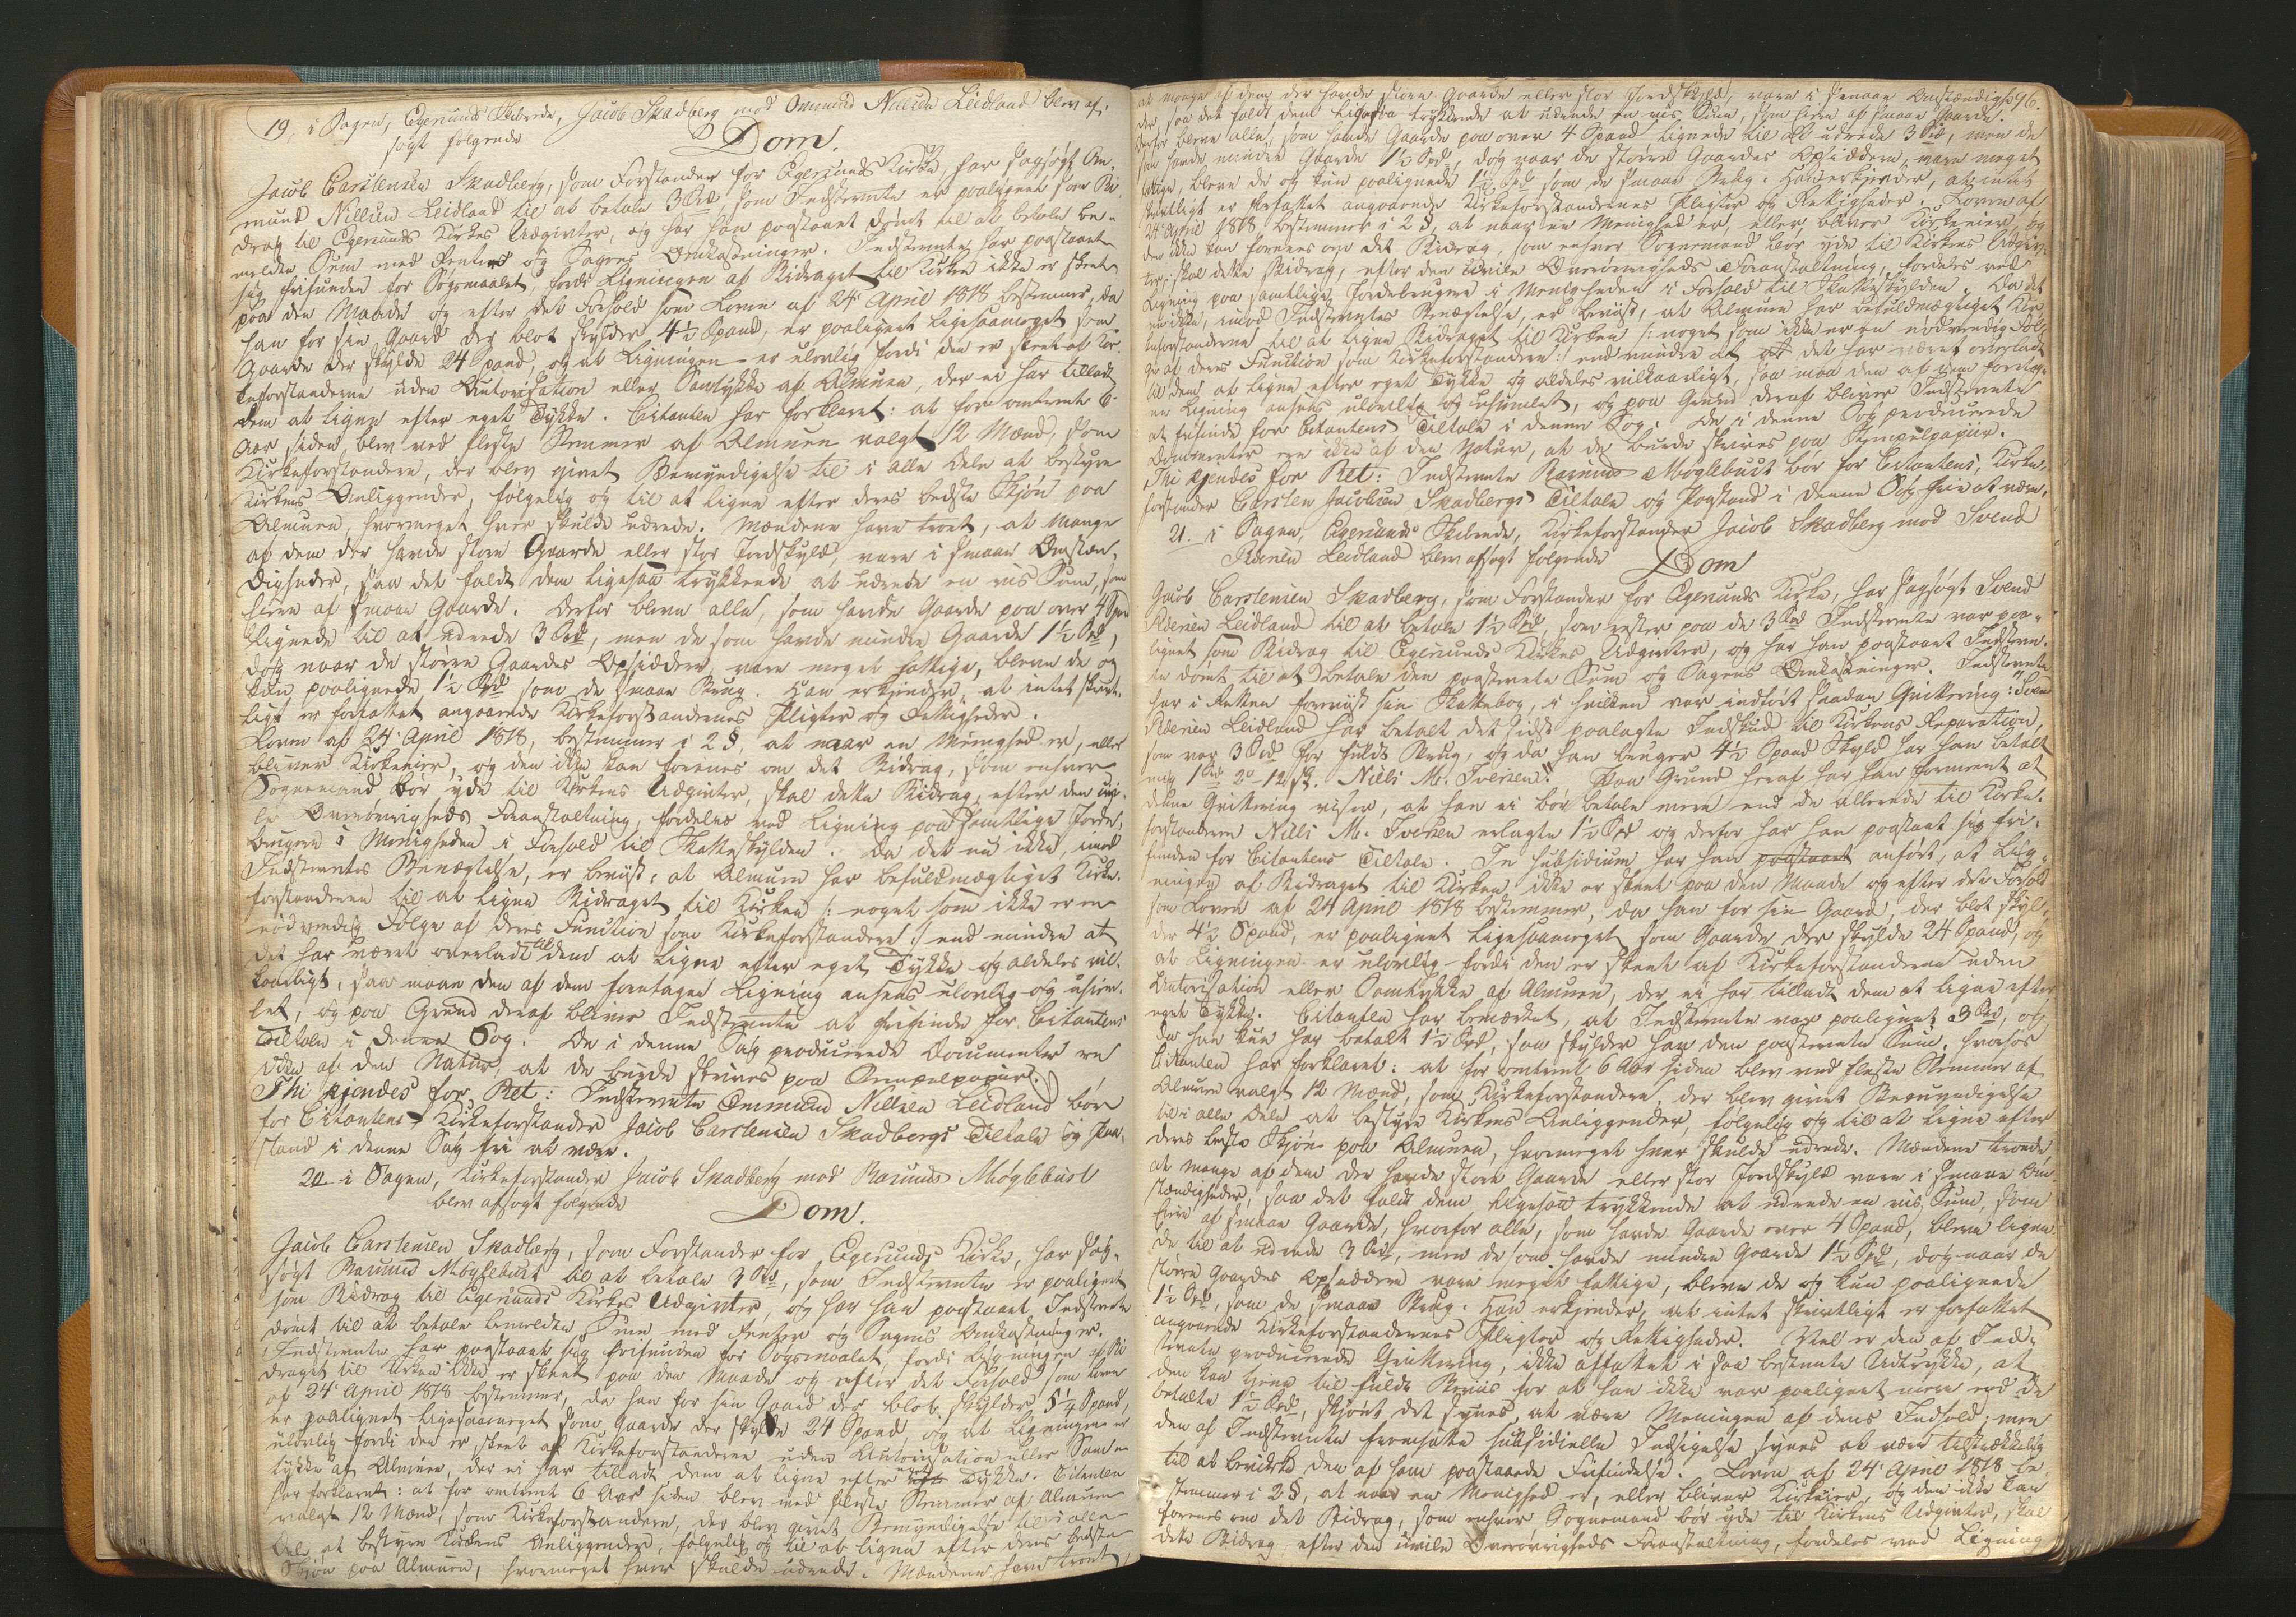 19, i Sagen, Egersunds Skibrede, Jacob Skadberg mod Ommund Nillsen Leidland blev af-
sagt følgende
Dom.
Jacob Carstensen Skadberg, som Forstander for Egersunds Kirke, har sagsøgt Om-
mund Nillsen Leidland til at betale 3 Spd, som Indstevnte er paalignet som Bi-
drag til Egersunds Kirkes Udgivter, og har han paastaaet dømt til at betale be-
meldte Sum med Renter og Sagens Omkostninger. Indstevnte har paastaaet
sig frifunden for Søgsmaalet, fordi Ligningen af Bidraget til Kirken ikke er skeet
paa den Maade og efter det Forhold som Loven af 24 April 1818 bestemmer, da
han for sin Gaard der blot skylder 4½ Spand, er paalignet ligesaameget som
Gaarde der skylde 24 Spand, og at Ligningen er ulovlig fordi den er skeet af Kir-
keforstanderne uden Autorisation eller Samtykke af Almuen, der ei har tilladt
dem at ligne efter eget Tykke. Citanten har forklaret: at for omtrent 6
Aar siden blev ved fleste Stemmer af Almuen valgt 12 Mænd, som
Kirkeforstandere, der blev givet Bemyndigelse til i alle Dele at bestyre
Kirkens Anliggender, følgelig og til at ligne efter deres bedste Skjøn paa
Almuen, hvormeget hver skulde udrede. Mændene have troet, at Mange
af dem der havde store Gaarde eller stor Jordskyld, vare i smaae Omstæn-
digheder, saa det faldt dem ligesaa trykkende at udrede en vis Sum, som
Eiere af smaae Gaarde. Derfor bleve alle, som havde Gaarde paa over 4 Spd
lignede til at udrede 3 Spd, men de som havde mindre Gaarde 1½ Spd,
dog naar de større Gaardes Opsiddere, vare meget fattige, bleve de og
kun paalignede 1½ Spd som de smaae Brug. Han erkjender, at intet skrivt-
ligt er forfattet angaaende Kirkeforstandernes Pligter og Rettigheder.
Loven af 24 April 1818, bestemmer i 2 §, at naar en Menighed er, eller
bliver Kirkeeier, og den ikke kan forenes om det Bidrag, som enhver
Sognemand bør yde til Kirkens Udgivter, skal dette Bidrag, efter den civi-
le Overøvrigheds Foranstaltning, fordeles ved Ligning paa samtlige Jorde-
brugere i Menigheden i Forhold til Matteskylden. Da det nu ikke, imod
Indstevntes Benægtelse, er beviist, at Almuen har befuldmægtiget Kirke-
forstanderne til at ligne Bidraget til Kirken /: noget som ikke er en
nødvendig Følge af deres Function som Kirkeforstandere :/ end mindre at
det har været overladt til dem at ligne efter eget Tykke og aldeles vil-
kaarligt, saa maae den af dem foretagne Ligning ansees ulovlig og uhjem-
let, og paa Grund deraf bliver Indstevnte at frifinde for Citantens
Tiltale i denne Sag. De i denne Sag producerede Documenter ere
ikke af den Natur, at de burde skrives paa Stempelpapiir.
Thi kjendes for Ret: Indstevnte Ommund Nillsen Leidland bør
for Citantens Kirkeforstander Jacob Carstensen Skadbergs Tiltale og Paa-
stand i denne Sag fri at være.
20 i Sagen, Kirkeforstander Jacob Skadberg mod Rasmus Møglebust
blev afsagt følgende
Dom.
Jacob Carstensen Skadberg, som Forstander for Egersunds Kirke, har sag-
søgt Rasmus Møglebust til at betale 3 Spd, som Indstevnte er paalignet
som Bidrag til Egersunds Kirkes Udgivter, og har han paastaaet Indstevnte
dømt til at betale bemeldte Sum med Renter og Sagens Omkostninger.
Indstevnte har paastaaet sig frifunden for Søgsmaalet, fordi Ligningen af Bi-
draget til Kirken ikke er skeet paa den Maade og efter det Forhold som Loven
af 24 April 1818 bestemmer, da han for sin Gaard der blot skylder 5¼ Spand,
er paalignet ligesaameget som Gaarde der skylde 24 Spand, og at Ligningen er
ulovlig fordi den er skeet af Kirkeforstanderne uden Autorisation eller Sam-
tykke af Almuen, der ei har tilladt dem at ligne efter eget Tykke. Citanten
har forklaret: at for omtrent 6 Aar siden blev ved fleste Stemmer af Almuen
valgt 12 Mænd, som Kirkeforstandere, der blev givet Bemyndigelse til i alle
Dele at bestyre Kirkens Anliggender, følgelig og til at ligne efter deres bedste
Skjøn paa Almuen, hvormeget hver skulde udrede. Mændene have troet,
96.
at mange af dem der havde store Gaarde eller stor Jordskyld, vare i smaae Omstændighe-
der, saa det faldt dem ligesaa trykkende at udrede en vis Sum, som Eiere af smaae Gaarde.
Derfor bleve alle, som havde Gaarde paa over 4 Spand lignede til at udrede 3 Spd, men de
som havde mindre Gaarde 1½ Spd, dog naar de større Gaardes Opsiddere, vare meget
fattige, bleve de og kun paalignede 1½ Spd som de smaae Brug. Han erkjender, at intet
skrivtligt er forfattet angaaende Kirkeforstandernes Pligter og Rettigheder. Loven af
24 April 1818, bestemmer i 2 §, at naar en Menighed er, eller bliver Kirkeeier, og
den ikke kan forenes om det Bidrag, som enhver Sognemand bør yde til Kirkens Udgiv-
ter, skal dette Bidrag, efter den civile Overøvrigheds Foranstaltning, fordeles ved
Ligning paa samtlige Jordebrugere i Menigheden i Forhold til Matteskylden. Da det
nu ikke, imod Indstevntes Benægtelse, er beviist, at Almuen har befuldmægtiget Kir-
keforstanderne til at ligne Bidraget til Kirken /: noget som ikke er en nødvendig Føl-
ge af deres Function som Kirkeforstandere :/ end mindre at det har været overladt
til dem at ligne efter eget Tykke og aldeles vilkaarligt, saa maa den af dem foretag-
ne Ligning ansees ulovlig og uhjemlet, og paa Grund deraf bliver Indstevnte
at frifinde for Citantens Tiltale i denne Sag. De i denne Sag producerede
Documenter ere ikke af den Natur, at de burde skrives paa Stempelpapiir.
Thi kjendes for Ret: Indstevnte Rasmus Møglebust bør for Citantens, Kirke-
forstander Carsten Jacobsen Skadbergs Tiltale og Paastand i denne Sag frie at være.
21. i Sagen, Egersunds Skibrede, Kirkeforstander Jacob Skadberg mod Svend
Leidland blev afsagt følgende
Dom
Jacob Carstensen Skadberg, som Forstander for Egersunds Kirke, har sagsøgt Svend
Leidland til at betale 1½ Spd, som rester paa de 3 Spd Indstevnte var paa-
lignet som Bidrag til Egersunds Kirkes Udgivter, og har han paastaaet Indstevn-
te dømt til at betale den paastevnte Sum og Sagens Omkostninger. Indstevnte
har i Retten foreviist sin Skattebog, i hvilken var indført saadan Qvittering: "Svend
Leidland har betalt det sidst paalagte Indskud til Kirkens Reparation,
som var 3 Spd for fuldt Brug, og da han bruger 4½ Spand Skyld har han betalt
mig 1 Spd 2 12 ß. Nills M. Iversen". Paa Grund heraf har han formeent at
denne Qvittering viser, at han ei bør betale mere end de allerede til Kirke-
forstanderen Nills M. Iversen erlagte 1½ Spd og derfor har han paastaaet sig fri-
funden for Citantens Tiltale. In subsidium har han paastaaet anført, at Lig-
ningen af Bidraget til Kirken ikke er skeet paa den Maade og efter det Forhold
som Loven af 24 April 1818 bestemmer, da han for sin Gaard, der blot skyl-
der 4½ Spand, er paalignet ligesaameget som Gaarde der skylde 24 Spand, og
at Ligningen er ulovlig fordi den er skeet af Kirkeforstanderne uden
Autorisation eller Samtykke af Almuen, der ei har tilladt dem at ligne efter
eget Tykke. Citanten har bemærket, at Indstevnte var paalignet 3 Spd, og
da han kun har betalt 1½ Spd, saa skylder han den paastevnte Sum. hvorhos
Citanten har forklaret: at for omtrent 6 Aar siden blev ved fleste Stemmer af
Almuen valgt 12 Mænd, som Kirkeforstandere, der blev givet Bemyndigelse
til i alle Dele at bestyre Kirkens Anliggender, følgelig og til at ligne efter
deres bedste Skjøn paa Almuen, hvormeget hver skulde udrede. Mændene troede,
at mange af dem der havde store Gaarde eller stor Jordskyld vare i smaae Om-
stændigheder, saa det faldt dem ligesaa trykkende at udrede en vis Sum, som
Eiere af smaae Gaarde, hvorfor alle, som havde Gaarde over 4 Spand, bleve ligne-
de til at udrede 3 Spd, men de som havde mindre Gaarde 1½ Spd, dog naar de
større Gaardes Opsiddere vare meget fattige, bleve de og kun paalignede
1½ Spd, som de smaae Brug. Han erkjender, at intet skrivtligt er forfattet
angaaende Kirkeforstandernes Pligter og Rettigheder. Vel er den af Ind-
stevnte producerede Qvittering, ikke affattet i saa bestemte Udtrykke, at
den kan tjene til fuldt Beviis for at han ikke var paalignet mere end de
betalte 1½ Spd, skjønt det synes at være Meningen af dens Indhold; men
den af Indstevnte fremsatte subsidielle Indsigelse synes at være tilstrækkelig
til at bevirke den af ham paastaaede Frifindelse. Loven af 24 April 1818 be-
stemmer i 2 §, at naar en Menighed er, eller bliver Kirkeeier, og den ikke kan
forenes om det Bidrag, som enhver Sognemand bør yde til Kirkens Udgivter, skal
dette Bidrag efter den civile Overøvrigheds Foranstaltning, fordeles ved Ligning